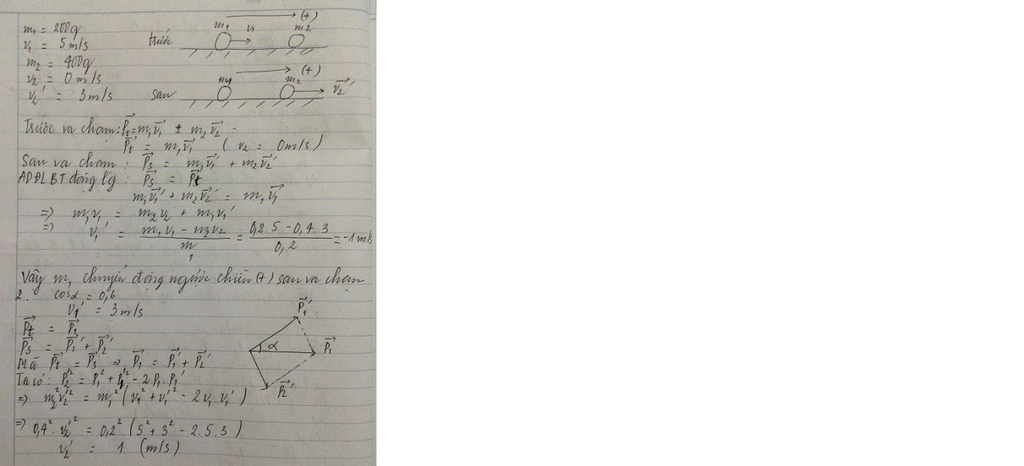 m₁ = 200g
v₁ = 5 m/s
m₂ = 400g
v₂ = 0 m/s
v₂' = 3 m/s
trước
m₁
v₁
m2
(+)
sau
m₁
m₂
(+)
v₂'
Trước va chạm: P⃗t = m₁v⃗₁ + m₂v⃗₂
P⃗t = m₁v⃗₁ ( v₂ = 0m/s )
Sau va chạm : P⃗s = m₁v⃗₁' + m₂v⃗₂'
ADĐLBT động lg : P⃗s = P⃗t
m₁v⃗₁' + m₂v⃗₂' = m₁v⃗₁
=> m₁v₁ = m₂v₂ + m₁v₁'
=> v₁' = (m₁v₁ - m₂v₂)/m₁ = (0,2.5 - 0,4.3)/0,2 = -1 m/s
Vậy m₁ chuyển động ngược chiều (+) sau va chạm
2. cosα = 0,6
v₁' = 3 m/s
P⃗t = P⃗₁
P⃗s = P⃗₁' + P⃗₂'
Mà P⃗t = P⃗s => P⃗₁ = P⃗₁' + P⃗₂'
Ta có: P₂'² = P₁² + P₁'² - 2P₁.P₁'
=> m₂²v₂'² = m₁² ( v₁² + v₁'² - 2v₁ v₁' )
=> 0,4² . v₂'² = 0,2² . ( 5² + 3² - 2.5.3 )
v₂' = 1 (m/s)
P⃗₁'
α
P⃗₁
P⃗₂'